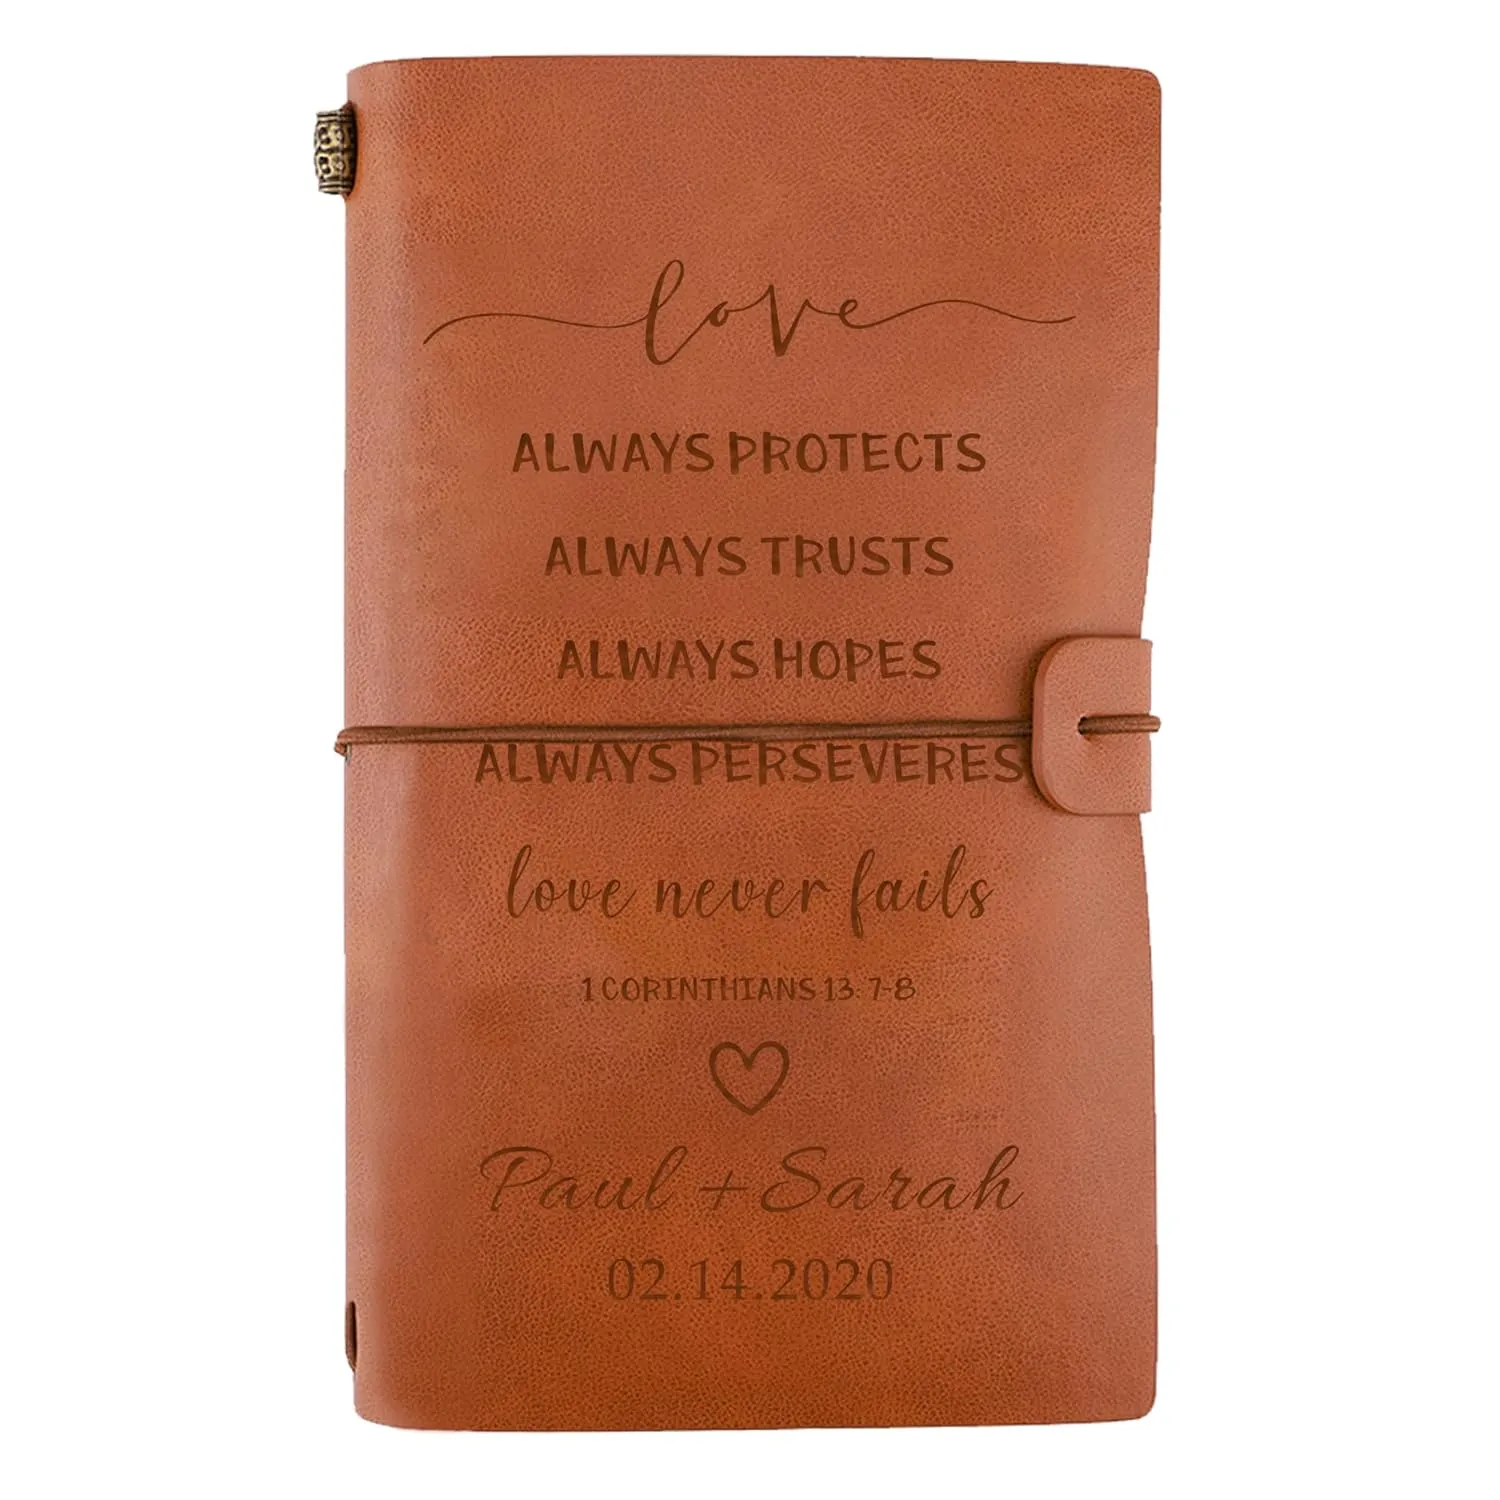 love
ALWAYS PROTECTS
ALWAYS TRUSTS
ALWAYS HOPES
ALWAYS PERSEVERES
love never fails
1 CORINTHIANS 13: 7-8
Paul + Sarah
02.14.2020